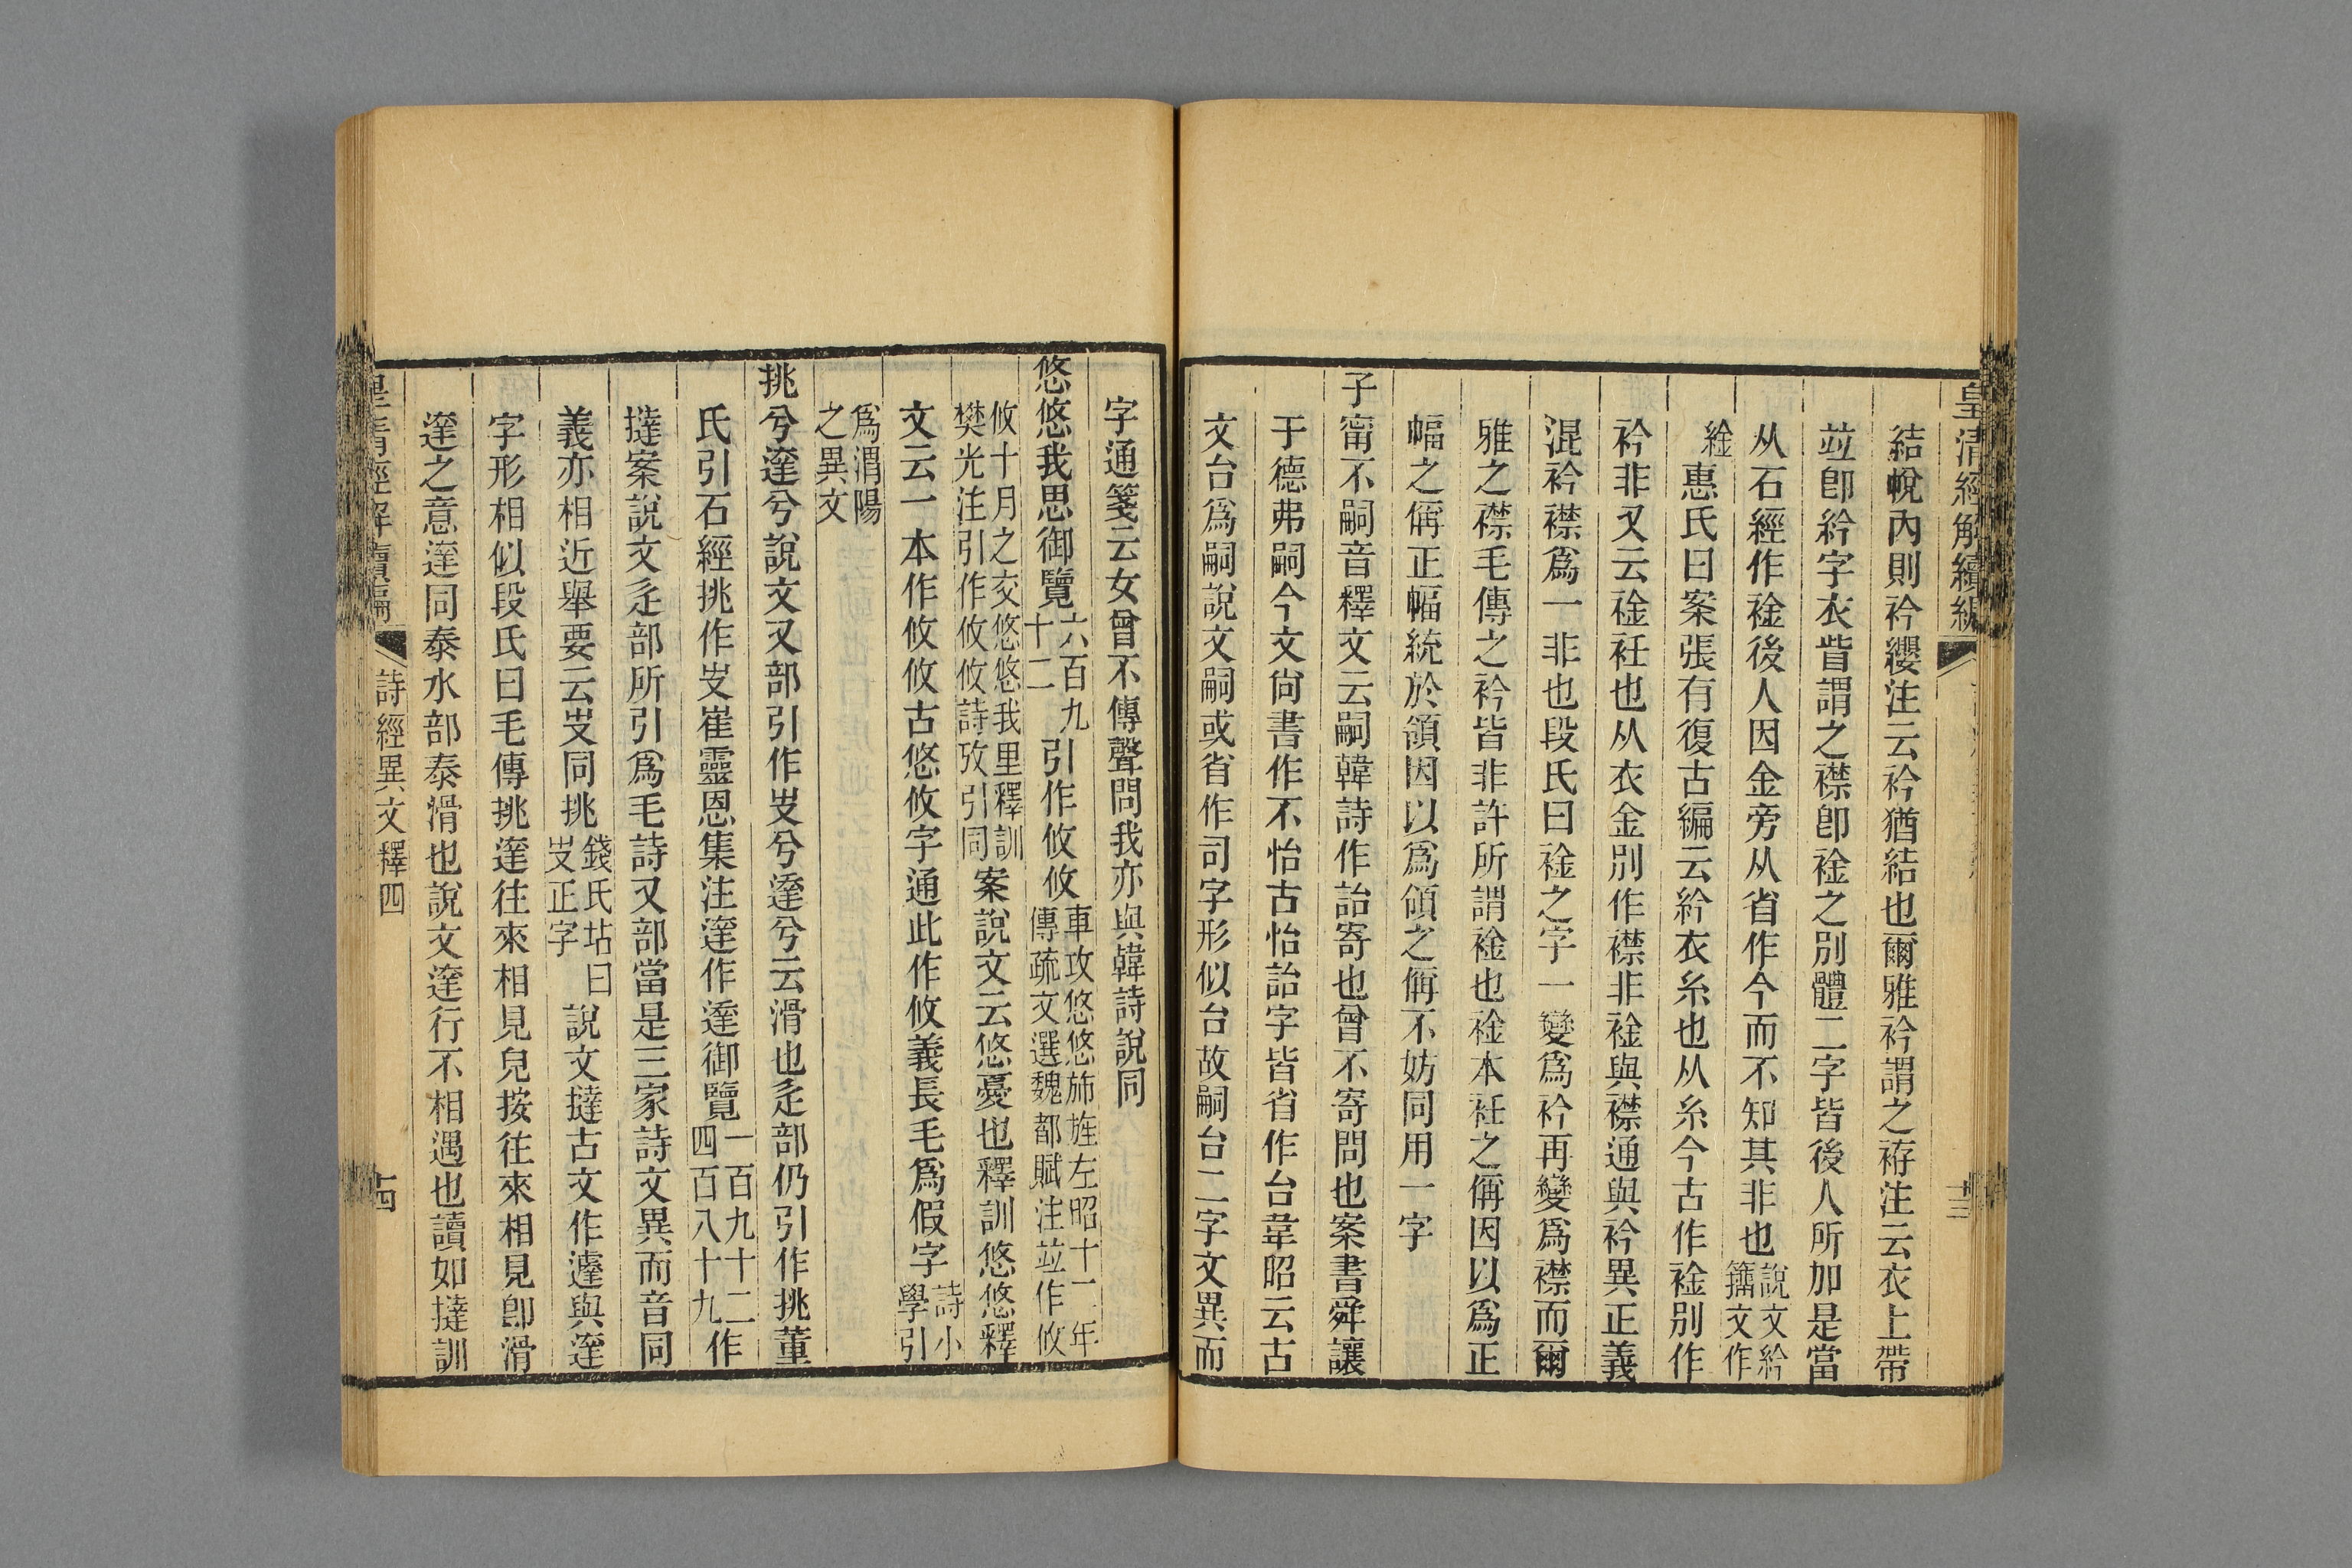 皇清經解續編
十三
結帨內則衿纓注云衿猶結也爾雅衿謂之袸注云衣上帶
竝卽紟字衣眥謂之襟卽裣之別體二字皆後人所加是當
从石經作裣後人因金旁从省作今而不知其非也說文紟籒文作
䋮惠氏曰案張有復古編云紟衣糸也从糸今古作裣別作
衿非又云裣衽也从衣金別作襟非裣與襟通與衿異正義
混衿襟爲一非也段氏曰裣之字一變爲衿再變爲襟而爾
雅之襟毛傳之衿皆非許所謂裣也裣本衽之偁因以爲正
幅之偁正幅統於領因以爲領之偁不妨同用一字
子甯不嗣音釋文云嗣韓詩作詒寄也曾不寄問也案書舜讓
于德弗嗣今文尙書作不怡古怡詒字皆省作台韋昭云古
文台爲嗣說文嗣或省作司字形似台故嗣台二字文異而
字通箋云女曾不傳聲問我亦與韓詩說同
悠悠我思御覽六百九十二引作攸攸車攻悠悠斾旌左昭十二年傳疏文選魏都賦注竝作攸
攸十月之交悠悠我里釋訓樊光注引作攸攸詩攷引同案說文云悠憂也釋訓悠悠釋
文云一本作攸攸古悠攸字通此作攸義長毛爲假字詩小學引
爲渭陽之異文
挑兮達兮說文又部引作㞰兮達兮云滑也辵部仍引作挑董
氏引石經挑作㞰崔靈恩集注達作達御覽一百九十二作四百八十九
撻案說文辵部所引爲毛詩又部當是三家詩文異而音同
義亦相近舉要云㞰同挑錢氏坫曰㞰正字說文撻古文作𨔶與達
字形相似段氏曰毛傳挑達往來相見皃按往來相見卽滑
達之意達同泰水部泰滑也說文達行不相遇也讀如撻訓
皇清經解續編
詩經異文釋四
十四